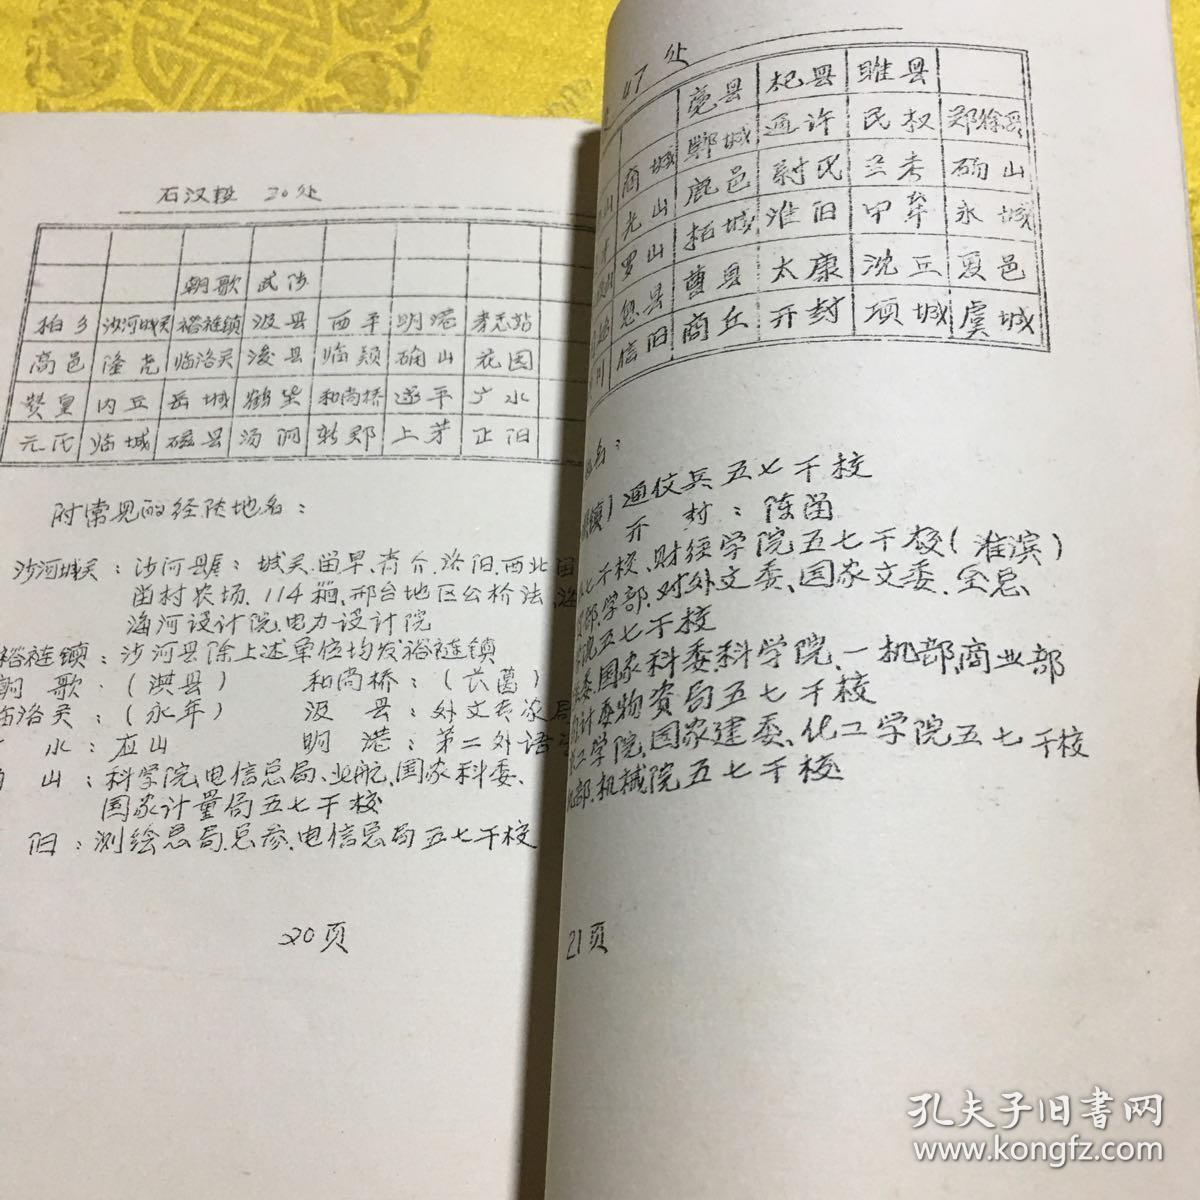 石汉段 30处
朝歌 武陟
柏乡 沙河城关 裕裢镇 汲县 西平 明港 孝感站
高邑 隆尧 临洺关 浚县 临颍 确山 花园
赞皇 内丘 岳城 鹤壁 和尚桥 遂平 广水
元氏 临城 磁县 汤阴 新郑 上茅 正阳
附常见的经转地名：
沙河城关：沙河县属：城关、留早、青介、洛阳、西北留
留村农场、114箱、邢台地区公桥法、海
海河设计院、电力设计院
裕裢镇：沙河县除上述单位均发裕裢镇
朝 歌：（淇县） 和尚桥：（长葛）
临洺关：（永年） 汲 县：外文专家局
水：应山 明 港：第二外语
山：科学院、电信总局、北航、国家科委、
国家计量局五七干校
阳：测绘总局、总参、电信总局五七干校
20页
47处
亳县 杞县 睢县
商城 鄲城 通许 民权 郑徐
光山 鹿邑 尉氏 兰考 砀山
罗山 柘城 淮阳 中牟 永城
息县 曹县 太康 沈丘 夏邑
信阳 商丘 开封 项城 虞城
名：
镇）通信兵五七干校
开 封：陈留
七干校、财经学院五七干校（淮滨）
部、学部、对外文委、国家文委、全总、
院五七干校
委、国家科委、科学院、一机部、商业部
计委物资局五七干校
工学院、国家建委、化工学院五七干校
部、机械院五七干校
21页
孔夫子旧书网
www.kongfz.com